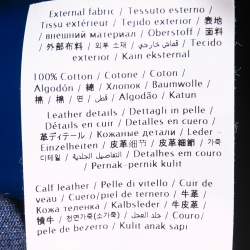 External fabric / Tessuto esterno /
Tissu extérieur / Tejido exterior / 表地
/ внешний материал / Oberstoff / 面料
/ 外部布料 / 외부 소재 / قماش خارجي / Tecido
exterior / Kain eksternal
100% Cotton / Cotone / Coton /
Algodón / 綿 / Хлопок / Baumwolle /
棉 / 棉 / 면 / قطن / Algodão / Katun
Leather details / Dettagli in pelle /
Détails en cuir / Detalles en cuero /
革ディテール / Кожаные детали / Leder -
Einzelheiten / 皮革细节 / 皮革細節 / 가죽
디테일 / التفاصيل الجلدية / Detalhes em couro
/ Pernak-pernik kulit
Calf leather / Pelle di vitello / Cuir
de veau / Cuero/piel de ternero / 牛革 /
Кожа теленка / Kalbsleder / 牛皮革 /
犢牛皮 / 천연가죽(소가죽) / جلد عجل / Couro/
pele de bezerro / Kulit anak sapi